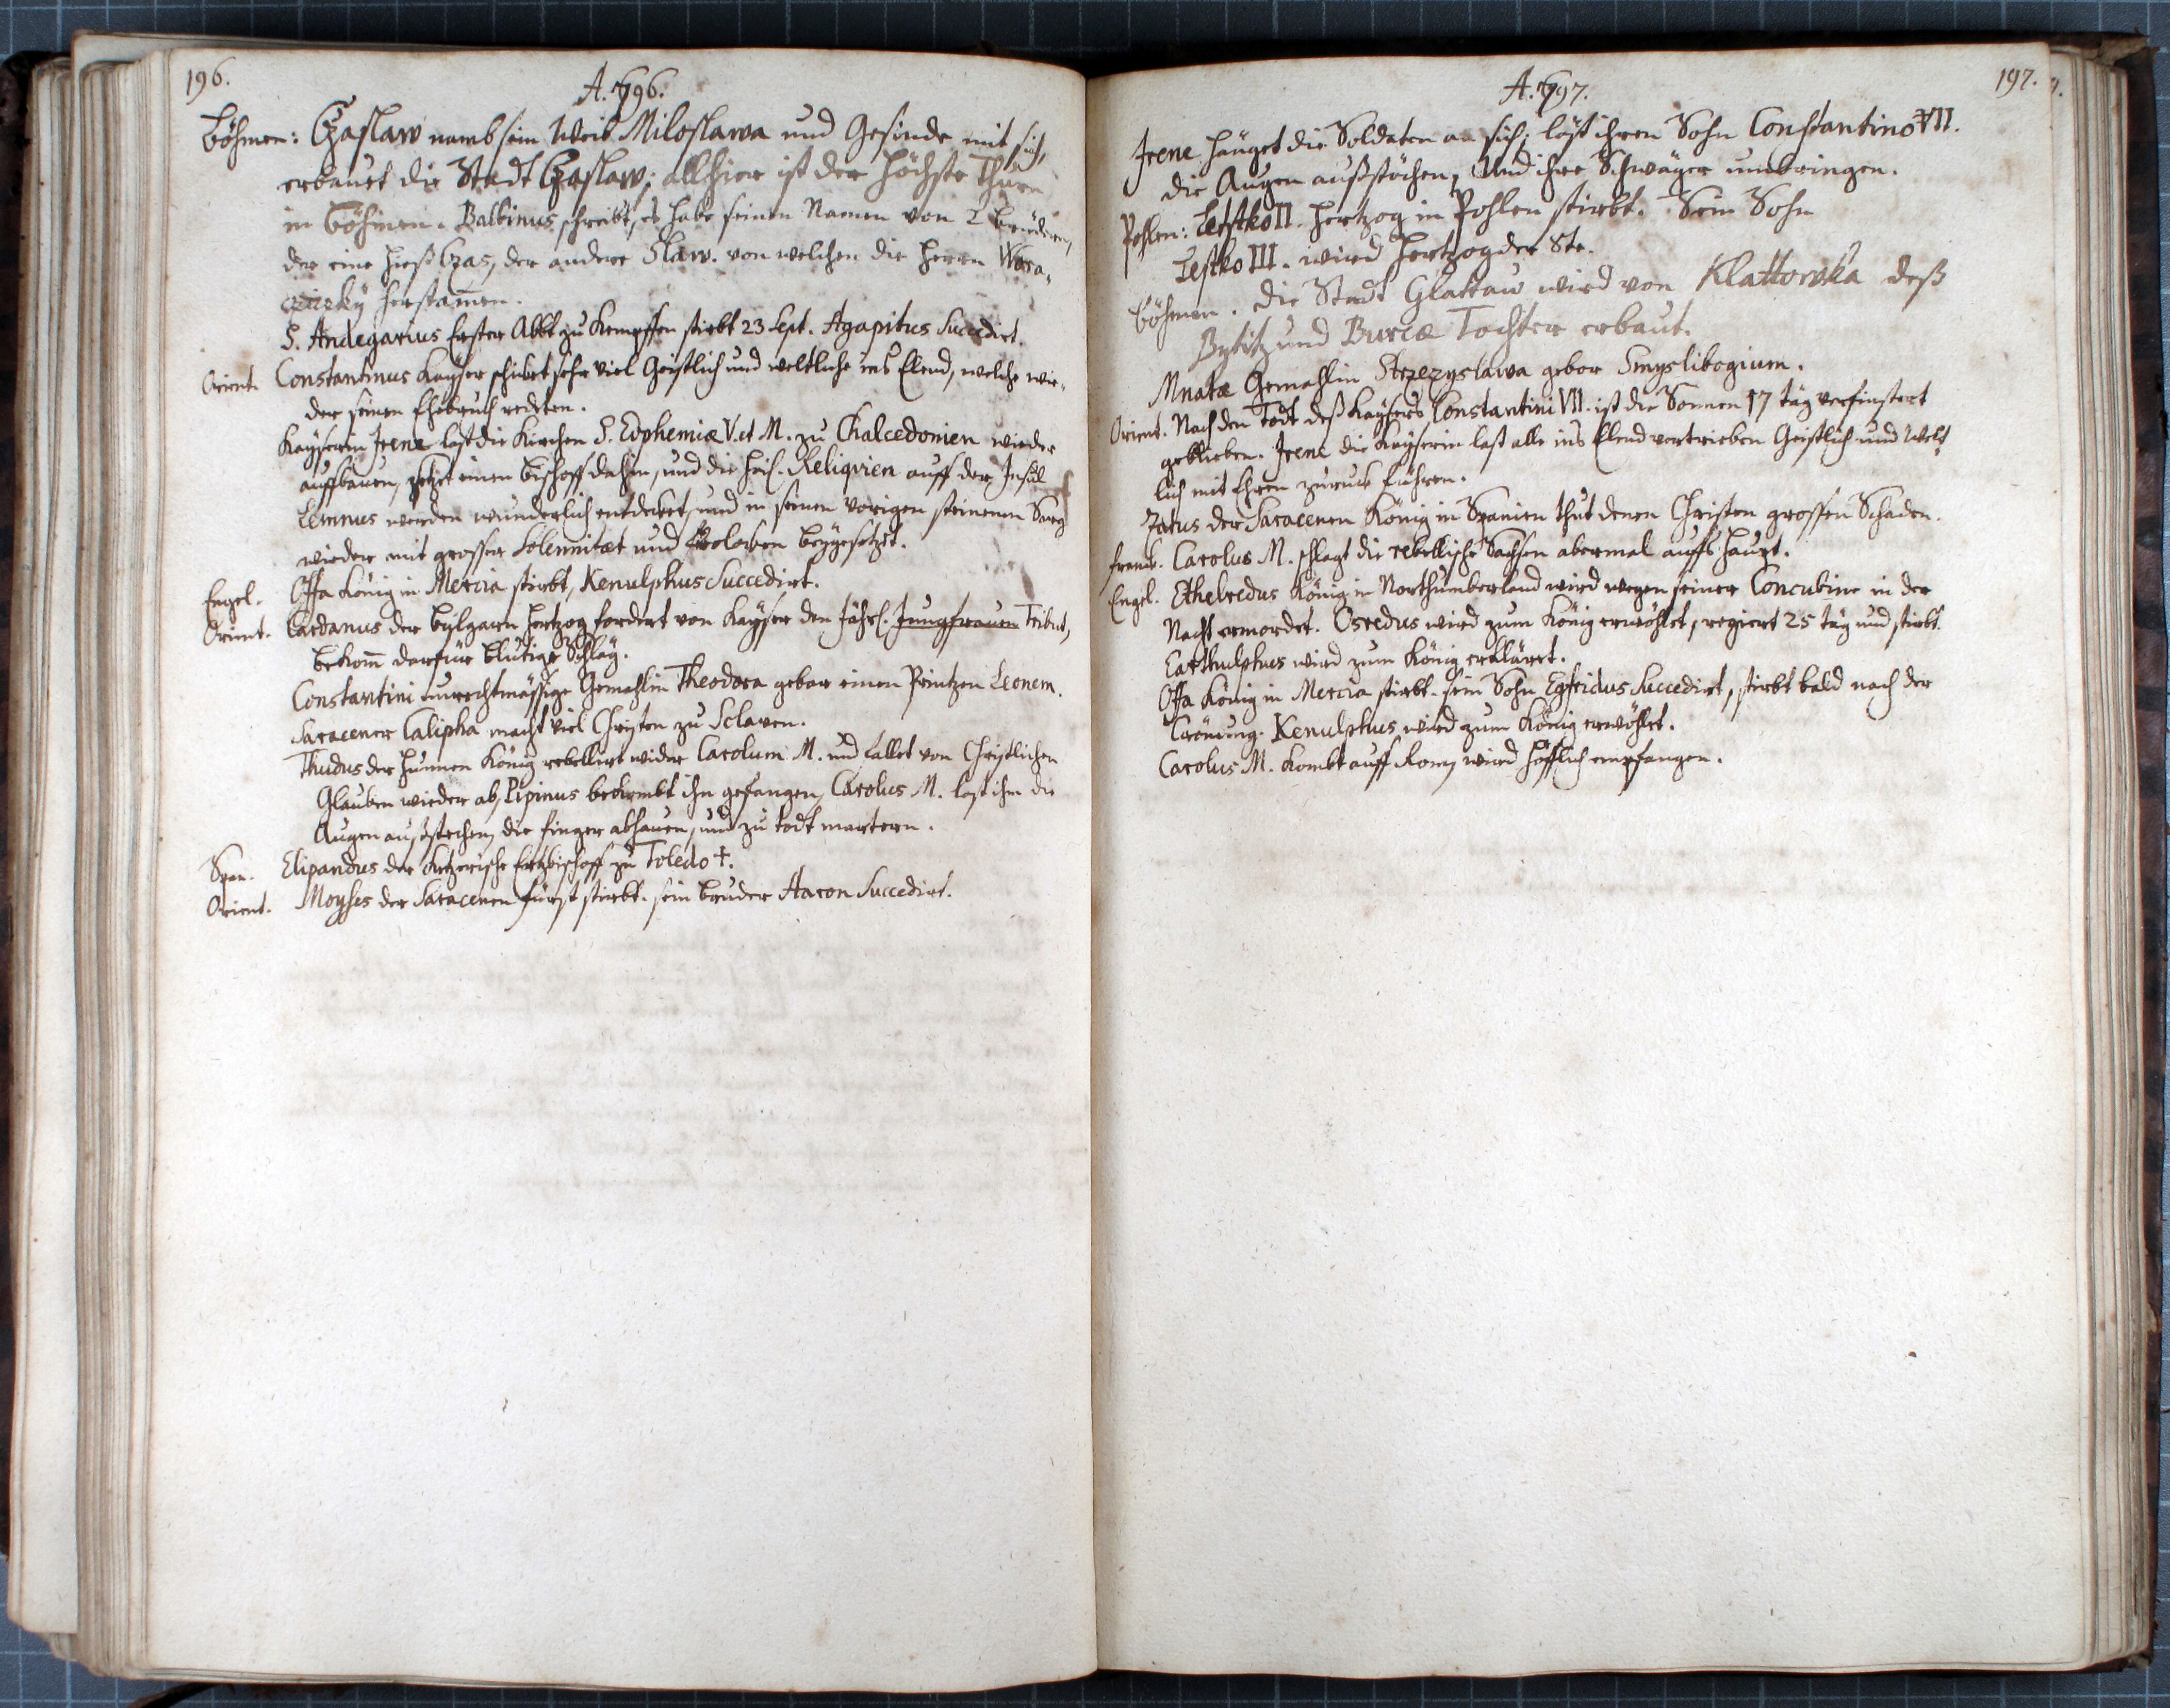 196.
A. 796.
Böhmen: Czaslaw namb sein Weib Miloslawa und Gesinde mit sich,
erbauet die Stadt Czaslaw; allhier ist der höchste Thurn
in Böhmen. Balbinus schreibt, es habe seinen Namen von 2 brüdern,
der eine hieß Czas, der andere Slaw. von welchen die Herrn Wra-
herstam̄en.
S. Andegarius Erster Abbt zu Kempffen stirbt 23 Sept. Agapitus Succedirt.
Orient. Constantinus Kayser schicket sehr viel Geistlich und weltliche ins Elend, welche wie-
der seinen Ehebruch redeten.
Kayserin Irene last die Kirchen S. Euphemiæ V. et M. zu Chalcedonien wieder
auffbauen, setzet einen Bischoff dahin, und die heil. Reliqvien auff der Insul
Lemnus werden wunderlich entdecket, und in seinen vorigen steinenen Sarg
wieder mit grosser Solennitæt und beygesetzet.
Engel. Offa König in Mercia stirbt, Kenulphus Succedirt.
Orient. Cardanus der bulgarn Hertzog fordert von Kayser den Jährl. Jungfrauen Tribut,
bekom̄ darfür blutige Schläg.
Constantini unrechtmässige Gemahlin Theodora gebar einen Printzen Leonem.
Saracener Calipha macht viel Christen zu Sclaven.
Thudus der Hunnen König rebellirt wider Carolum M. und fallet von Christlichen
Glauben wieder ab, Pipinus bekombt ihn gefangen, Carolus M. last ihm die
Augen außstechen, die finger abhauen, und zu todt martern.
Span. Elipandus der Ketzerische Ertzbischoff zu Toledo †.
Orient. Moyses der Saracenen fürst stirbt. sein bruder Aaron Succedirt.
197.
A. 797.
Irene hänget die Soldaten an sich; läst ihren Sohn Constantino VII.
die Augen außstöchen, Und ihre Schwäger umbringen.
Pohlen: Leſtko II. Hertzog in Pohlen stirbt. Sein Sohn
Leſtko III. wird Hertzog der 8te.
Böhmen. die Stadt Glattau wird von Klattowka deß
Bytitz und Burcæ Tochter erbaut.
Mnatæ Gemahlin Strzezyslawa gebor Smyslibogium.
Orient. Nach den Todt deß Kaysers Constantini VII. ist die Sonnen 17 täg verfinstert
geblieben. Irene die Kayserin last alle ins Elend vertrieben Geistlich und Welt-
lich mit Ehren zuruck führen.
Zatus der Saracenen König in Spanien thut denen Christen grossen Schaden.
Franck. Carolus M. schlagt die rebellische Sachsen abermal auffs haupt.
Engel. Ethelredus König in Northumberland wird wegen seiner Concubine in der
Nacht ermordet. Osredus wird zum König erwöhlet, regiert 25 täg und stirbt.
Earthulphus wird zum König erkläret.
Offa König in Mercia stirbt. sein Sohn Egfridus Succedirt, stirbt bald nach der
Crönung. Kenulphus wird zum König erwöhlet.
Carolus M. kombt auff Rom, wird höfflich empfangen.